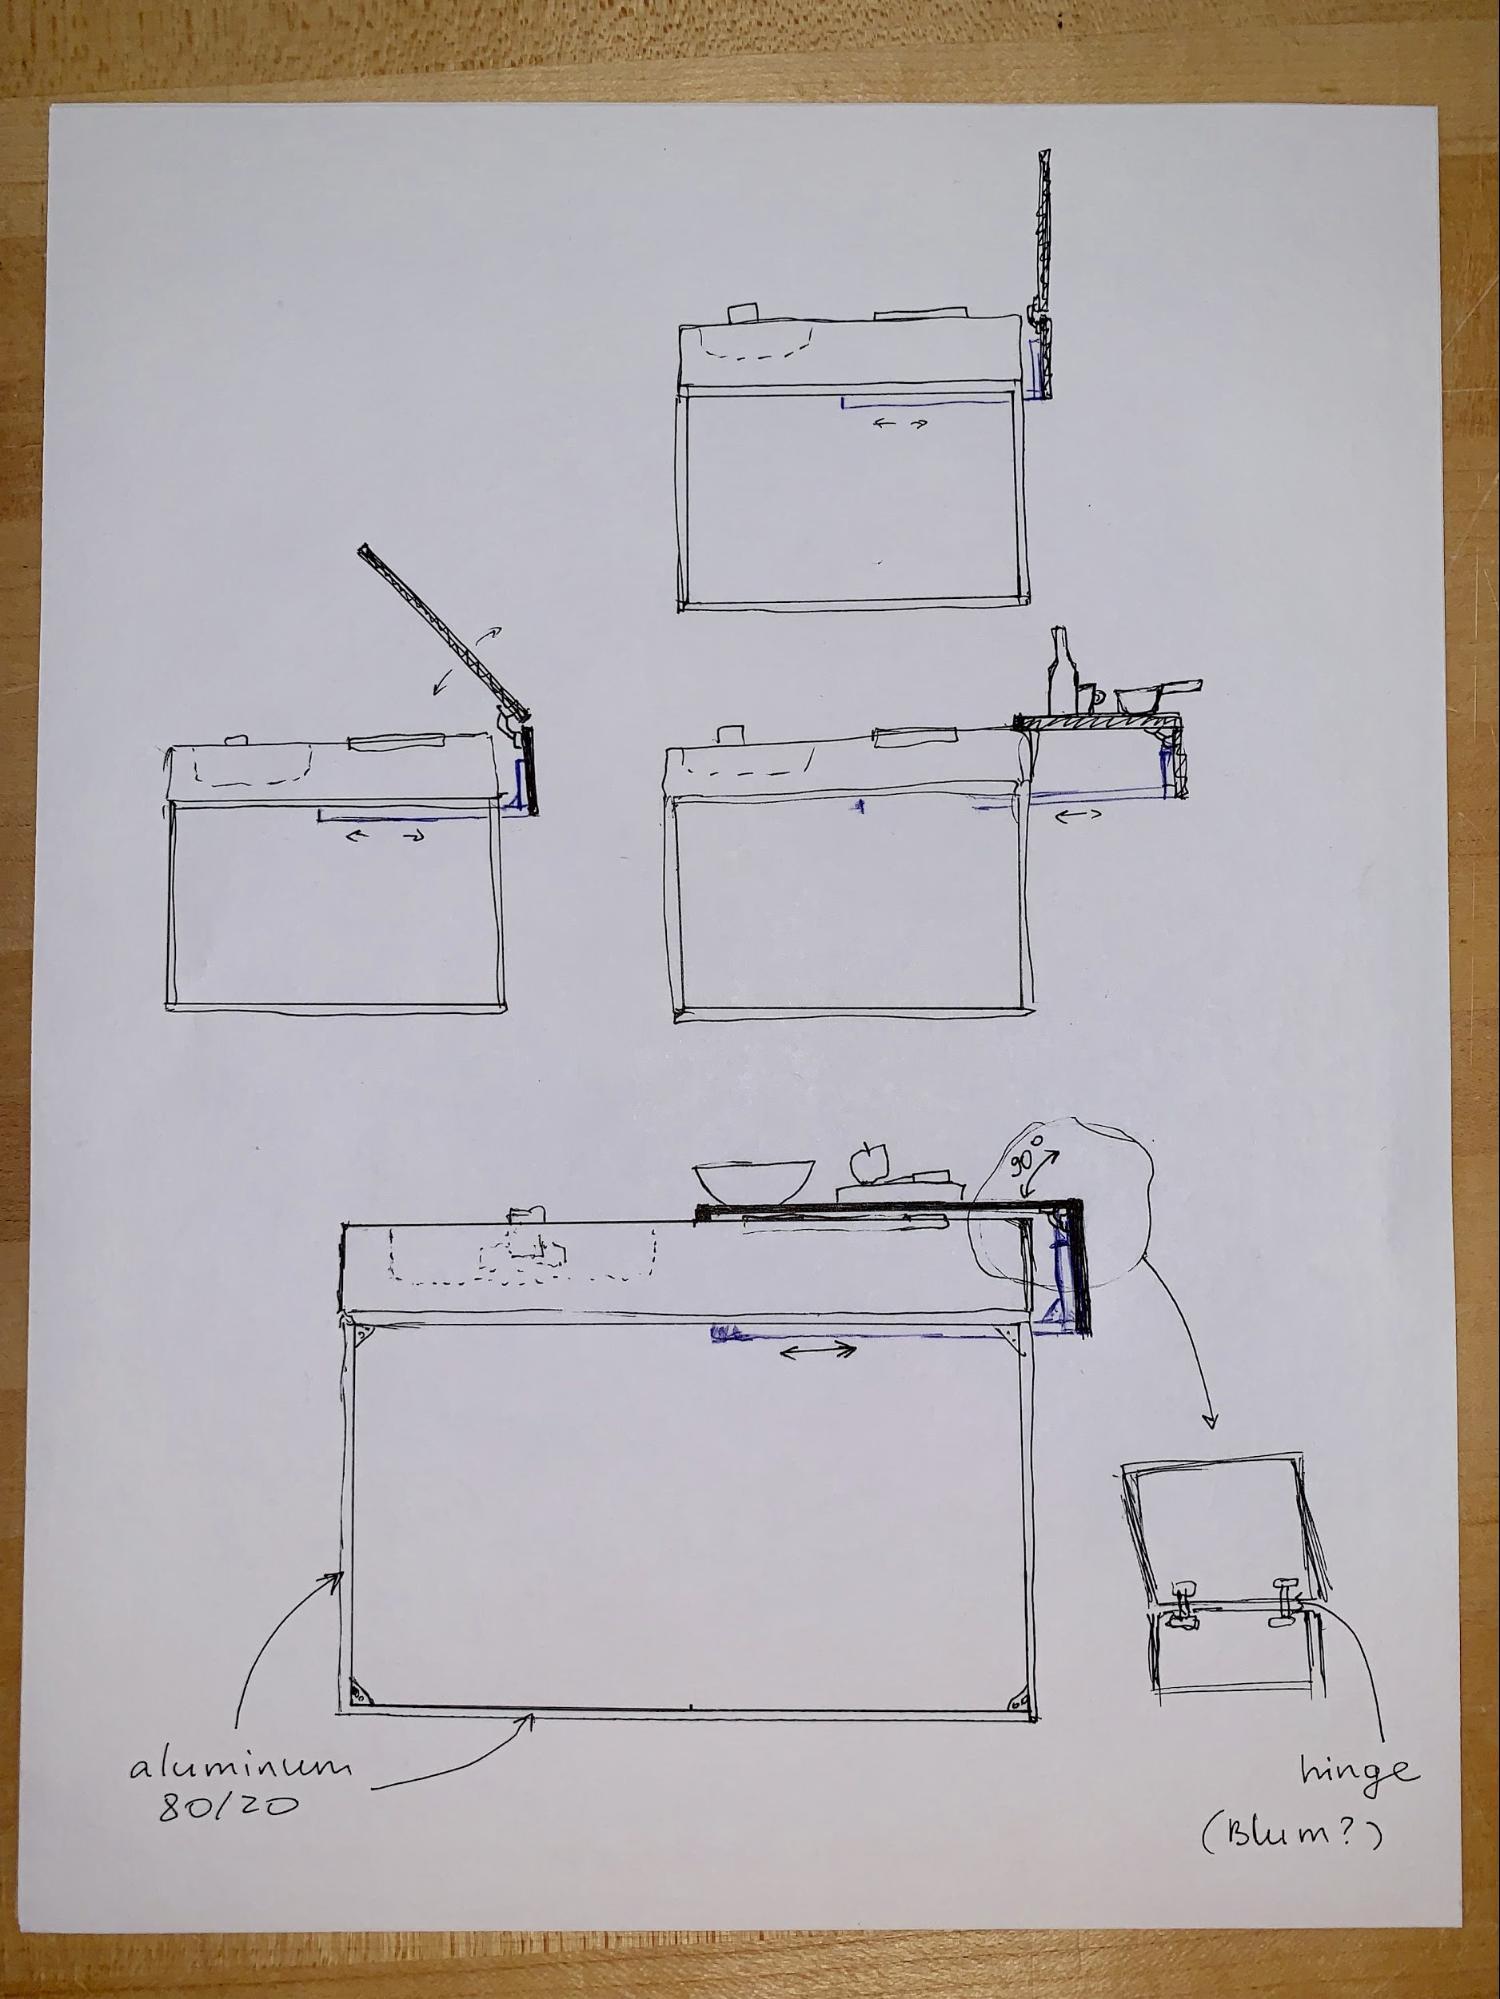 90°
aluminum
80/20
hinge
(Blum?)